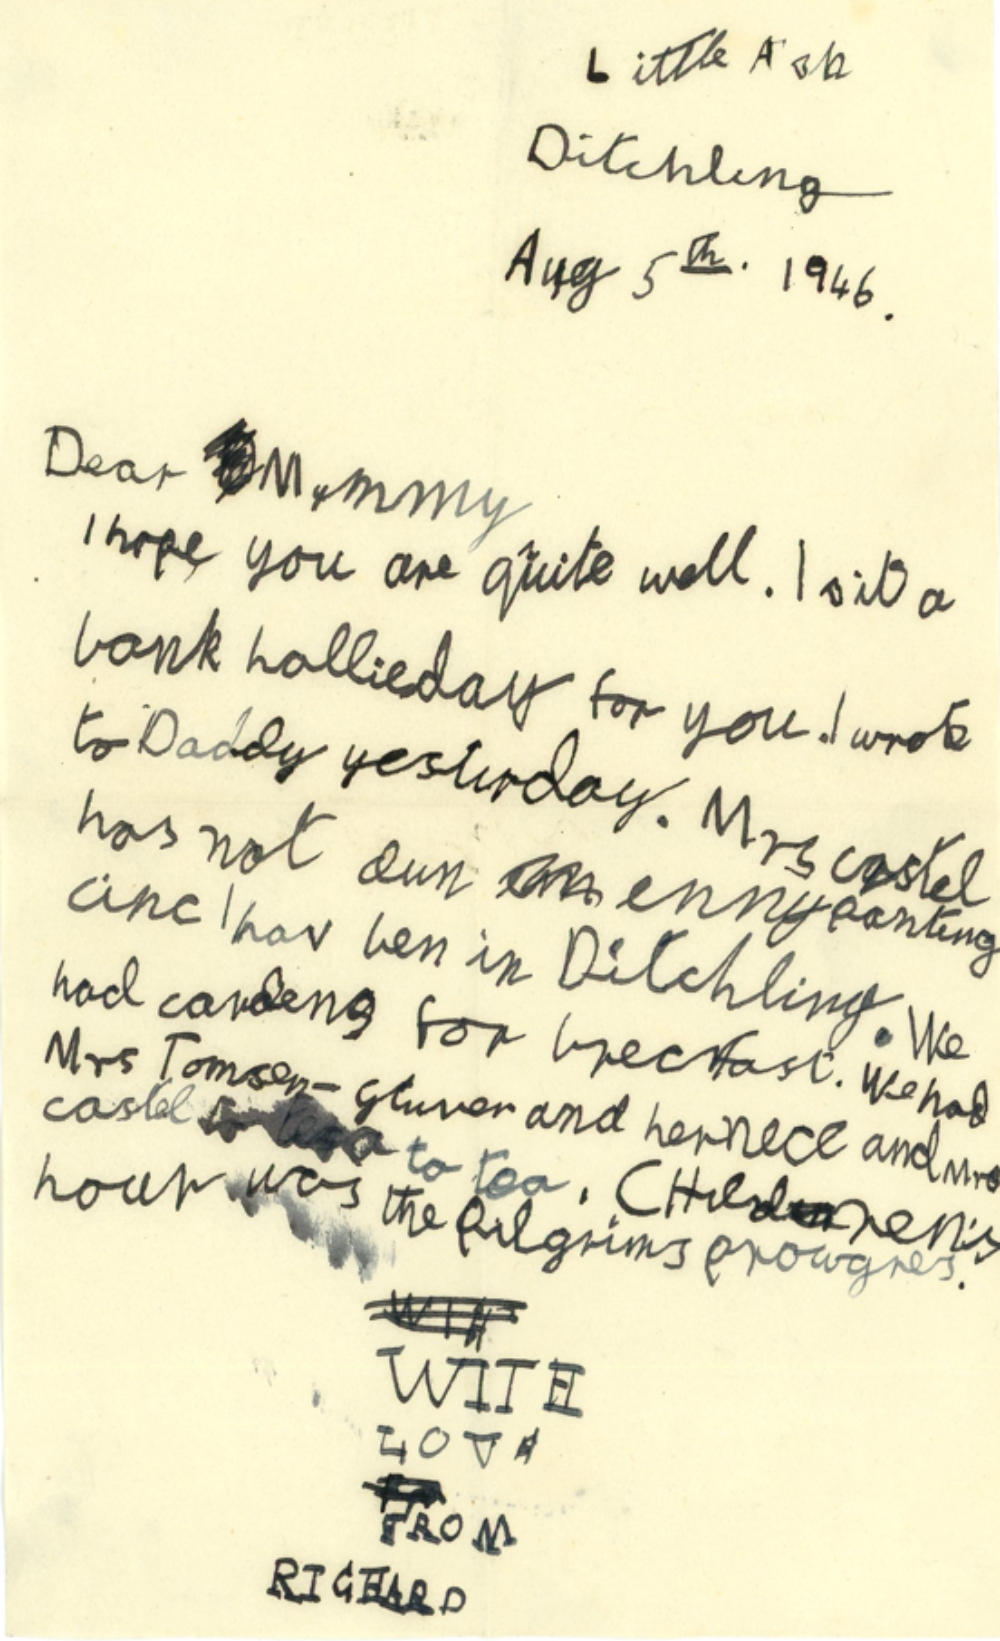 Little Ash
Ditchling
Aug 5th. 1946.
Dear Mummy
I hope you are quite well. I sit a
bank hollieday for you. I wrote
to Daddy yesturday. Mrs castel
has not dun enny panting
cinc I hav ben in Ditchling. We
had for brecfast. We had
Mrs Tomsen-gluver and her nece and Mrs
castel to tea. CHildren's
hour was the pilgrims prowgres.
WITH
LOVE
FROM
RICHARD